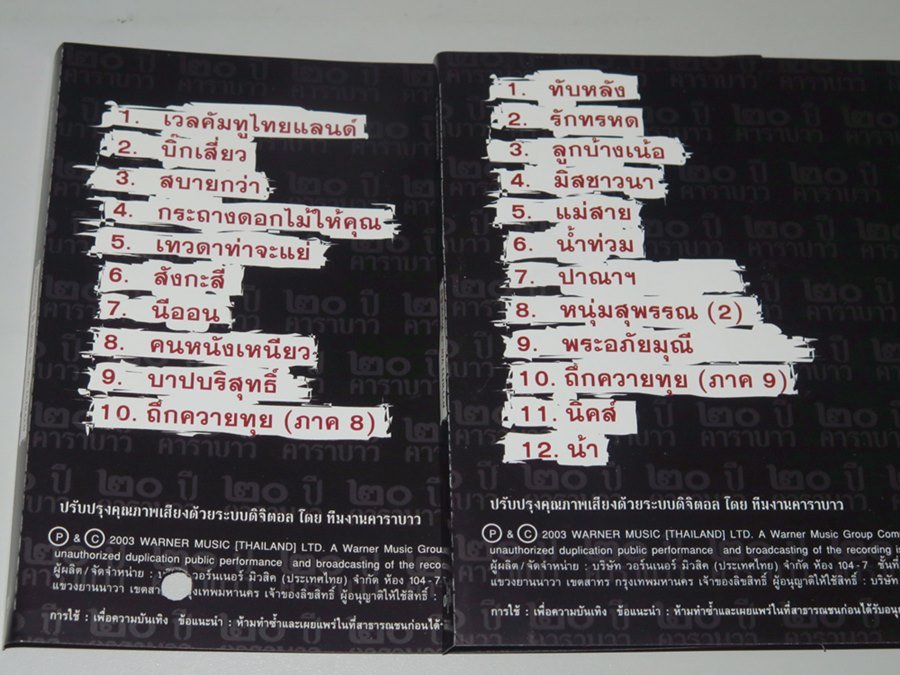 1. เวลคัมทูไทยแลนด์
2. บิ๊กเสี่ยว
3. สบายกว่า
4. กระถางดอกไม้ให้คุณ
5. เทวดาท่าจะแย่
6. สังกะสี
7. นีออน
8. คนหนังเหนียว
9. บาปบริสุทธิ์
10. ถึกควายทุย (ภาค 8)
๒๐ ปี
คาราบาว
ปรับปรุงคุณภาพเสียงด้วยระบบดิจิตอล โดย ทีมงานคาราบาว
P & C 2003 WARNER MUSIC [THAILAND] LTD. A Warner Music Grou
unauthorized duplication public performance and broadcasting of the recording
ผู้ผลิต/จัดจำหน่าย : วอร์นเนอร์ มิวสิค (ประเทศไทย) จำกัด ห้อง 104-7
แขวงยานนาวา เขตสาทร กรุงเทพมหานคร เจ้าของลิขสิทธิ์ ผู้อนุญาติให้ใช้สิทธิ์ :
การใช้ : เพื่อความบันเทิง ข้อแนะนำ : ห้ามทำซ้ำและเผยแพร่ในที่สาธารณชนก่อนได้
1. ทับหลัง
2. รักทรหด
3. ลูกบ้างเน้อ
4. มิสชาวนา
5. แม่สาย
6. น้ำท่วม
7. ปาณาฯ
8. หนุ่มสุพรรณ (2)
9. พระอภัยมุณี
10. ถึกควายทุย (ภาค 9)
11. นิคส์
12. น้า
๒๐ ปี
คาราบาว
ปรับปรุงคุณภาพเสียงด้วยระบบดิจิตอล โดย ทีมงานคาราบาว
P & C 2003 WARNER MUSIC [THAILAND] LTD. A Warner Music Group Com
unauthorized duplication public performance and broadcasting of the recording i
ผู้ผลิต/จัดจำหน่าย : บริษัท วอร์นเนอร์ มิวสิค (ประเทศไทย) จำกัด ห้อง 104-7 ชั้นที่
แขวงยานนาวา เขตสาทร กรุงเทพมหานคร เจ้าของลิขสิทธิ์ ผู้อนุญาติให้ใช้สิทธิ์ : บริษัท
การใช้ : เพื่อความบันเทิง ข้อแนะนำ : ห้ามทำซ้ำและเผยแพร่ในที่สาธารณชนก่อนได้รับอนุ